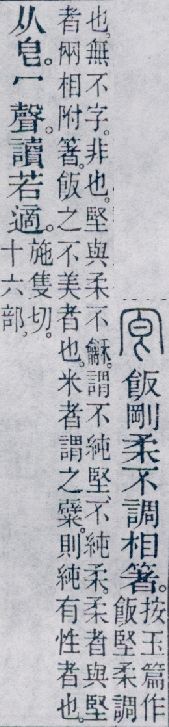 冟 飯剛柔不調相箸。
按玉篇作
飯堅柔調
也。無不字。非也。堅與柔不龢。謂不純堅、不純柔。柔者與堅
者兩相附箸。飯之不美者也。米者謂之糪。則純有性者也。
从皀。冖聲。讀若適。
施隻切。
十六部。